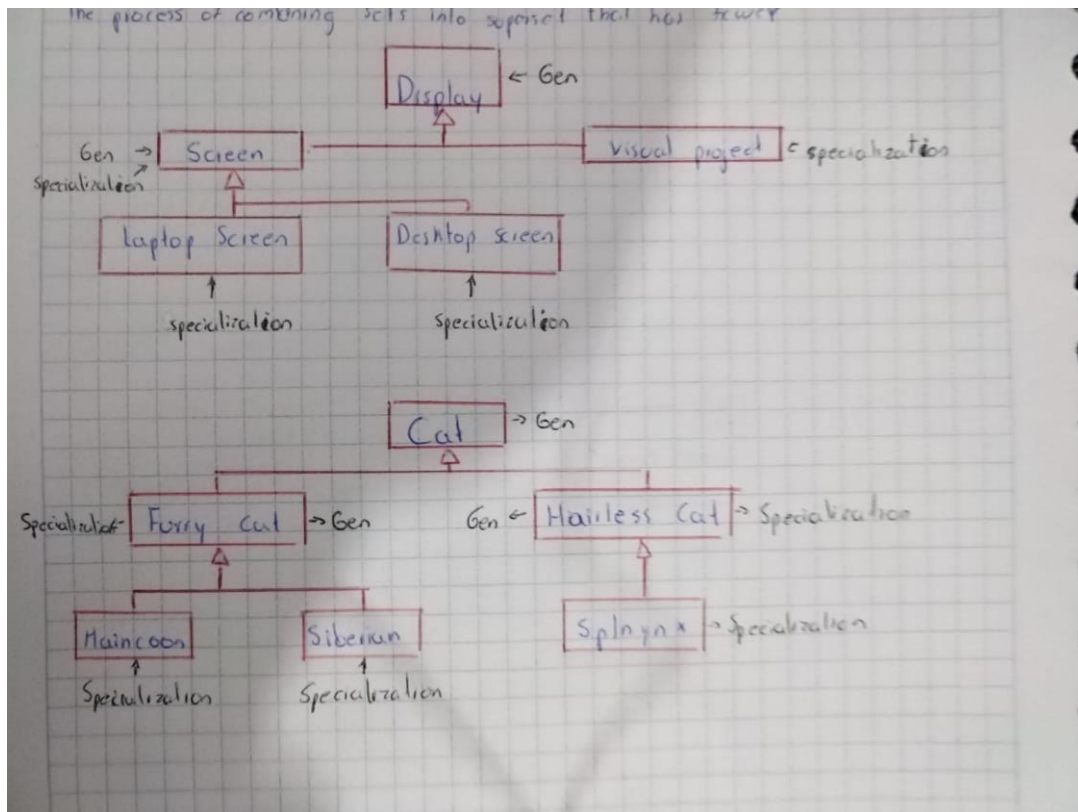 The process of combining sets into superset that has fewer
Display
← Gen
Gen →
Screen
Visual project
← specialization
Specialization
Laptop Screen
Desktop screen
specialization
specialization
Cat
→ Gen
Specialization
Furry Cat
→ Gen
Gen ←
Hairless Cat
→ Specialization
Maincoon
Siberian
Sphynx
→ Specialization
Specialization
Specialization